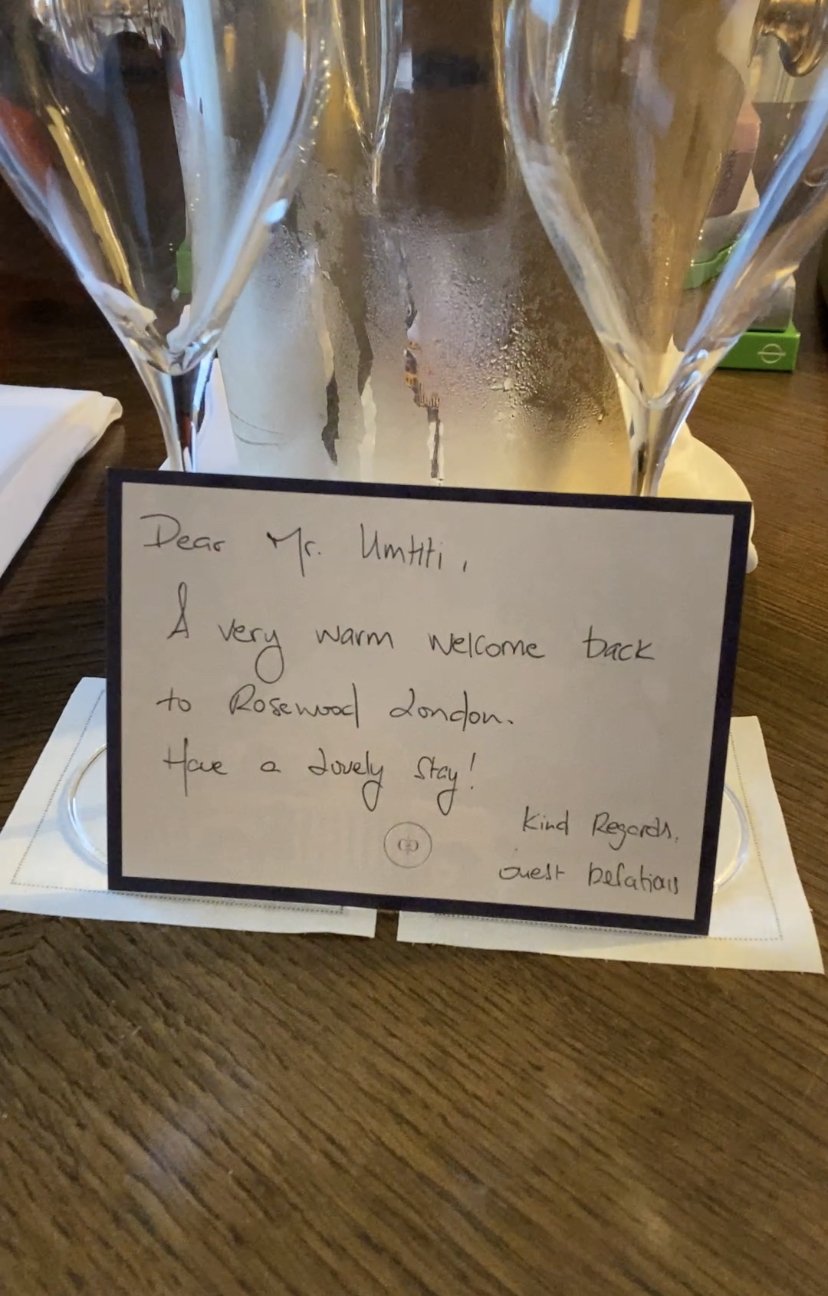 Dear Mr. Umtiti,
A very warm welcome back
to Rosewood London.
Have a lovely stay!
Kind Regards,
Guest Relations